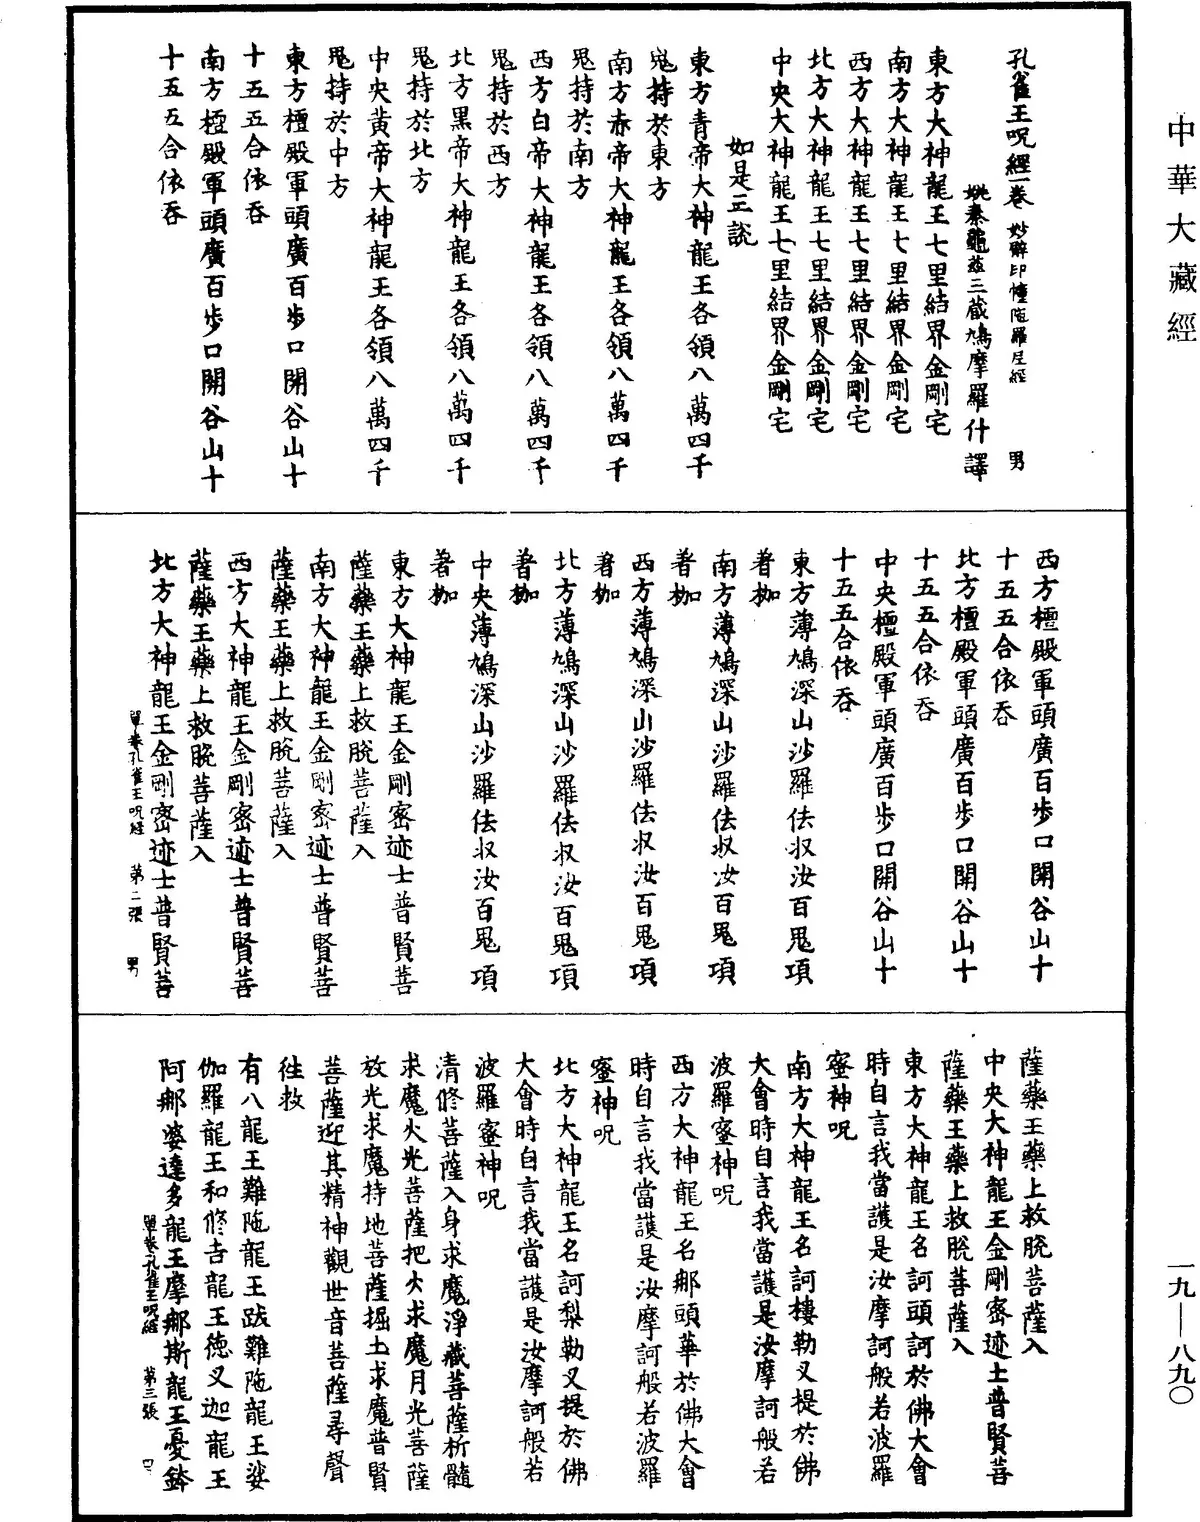 中華大藏經
孔雀王呪經一卷 妙辯印幢陁羅尼經 男
姚秦龜兹三藏鳩摩羅什譯
東方大神龍王七里結界金剛宅
南方大神龍王七里結界金剛宅
西方大神龍王七里結界金剛宅
北方大神龍王七里結界金剛宅
中央大神龍王七里結界金剛宅
如是三說
東方青帝大神龍王各領八萬四千
鬼持於東方
南方赤帝大神龍王各領八萬四千
鬼持於南方
西方白帝大神龍王各領八萬四千
鬼持於西方
北方黑帝大神龍王各領八萬四千
鬼持於北方
中央黃帝大神龍王各領八萬四千
鬼持於中方
東方檀殿軍頭廣百步口開谷山十
十五五合依吞
南方檀殿軍頭廣百步口開谷山十
十五五合依吞
西方檀殿軍頭廣百步口開谷山十
十五五合依吞
北方檀殿軍頭廣百步口開谷山十
十五五合依吞
中央檀殿軍頭廣百步口開谷山十
十五五合依吞
東方薄鳩深山沙羅佉收汝百鬼項
著枷
南方薄鳩深山沙羅佉收汝百鬼項
著枷
西方薄鳩深山沙羅佉收汝百鬼項
著枷
北方薄鳩深山沙羅佉收汝百鬼項
著枷
中央薄鳩深山沙羅佉收汝百鬼項
著枷
東方大神龍王金剛密迹士普賢菩
薩藥王藥上救脫菩薩入
南方大神龍王金剛密迹士普賢菩
薩藥王藥上救脫菩薩入
西方大神龍王金剛密迹士普賢菩
薩藥王藥上救脫菩薩入
北方大神龍王金剛密迹士普賢菩
單卷孔雀王呪經 第二張 男
薩藥王藥上救脫菩薩入
中央大神龍王金剛密迹士普賢菩
薩藥王藥上救脫菩薩入
東方大神龍王名訶頭訶於佛大會
時自言我當護是汝摩訶般若波羅
蜜神呪
南方大神龍王名訶樓勒叉提於佛
大會時自言我當護是汝摩訶般若
波羅蜜神呪
西方大神龍王名那頭華於佛大會
時自言我當護是汝摩訶般若波羅
蜜神呪
北方大神龍王名訶梨勒叉提於佛
大會時自言我當護是汝摩訶般若
波羅蜜神呪
清脩菩薩入身求魔淨藏菩薩析髓
求魔火光菩薩把火求魔月光菩薩
放光求魔持地菩薩掘土求魔普賢
菩薩迎其精神觀世音菩薩尋聲
往救
有八龍王難陁龍王跋難陁龍王娑
伽羅龍王和脩吉龍王德叉迦龍王
阿那婆達多龍王摩那斯龍王憂鉢
單卷孔雀王呪經 第三張
一九—八九〇